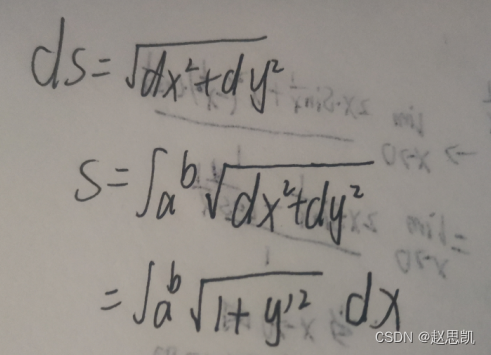 ds=√dx²+dy²
s=∫ab√dx²+dy²
=∫ab√1+y'² dx
CSDN @赵思凯